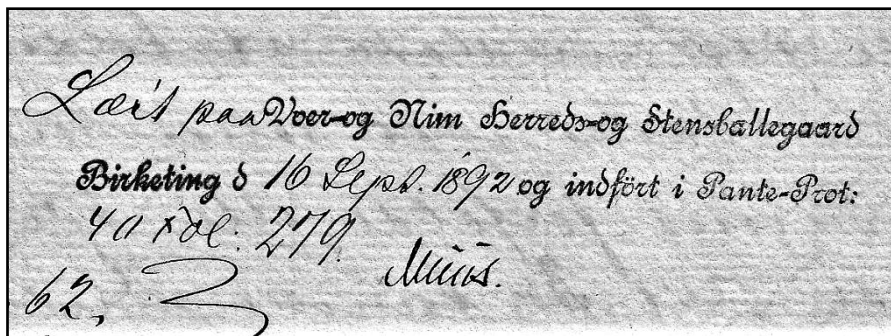 Læst paa Voer-og Nim Herreds-og Stensballegaard
Birketing d 16 Sept. 1892 og indfört i Pante-Prot:
40 Fol: 279.
Muus.
62.